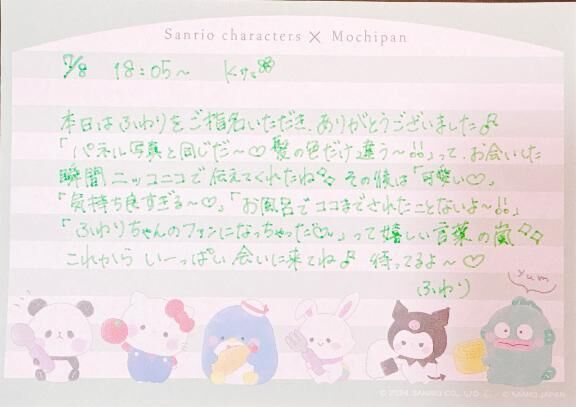 Sanrio characters × Mochipan
7/8 18:05〜 Kサマ
本日はふわりをご指名いただき、ありがとうございました♪
「パネル写真と同じだ〜♡髪の色だけ違う〜!!」って、お会いした
瞬間ニッコニコで伝えてくれたね♪ その後は「可愛い♡」
「気持ち良すぎる〜♡」「お風呂でココまでされたことないよ〜!!」
「ふわりちゃんのファンになっちゃった♡〜」って嬉しい言葉の嵐
これから いーっぱい 会いに来てね♪ 待ってるよ〜♡
(ふわり)
yum
© 2024 SANRIO CO., LTD. © MOND JAPAN